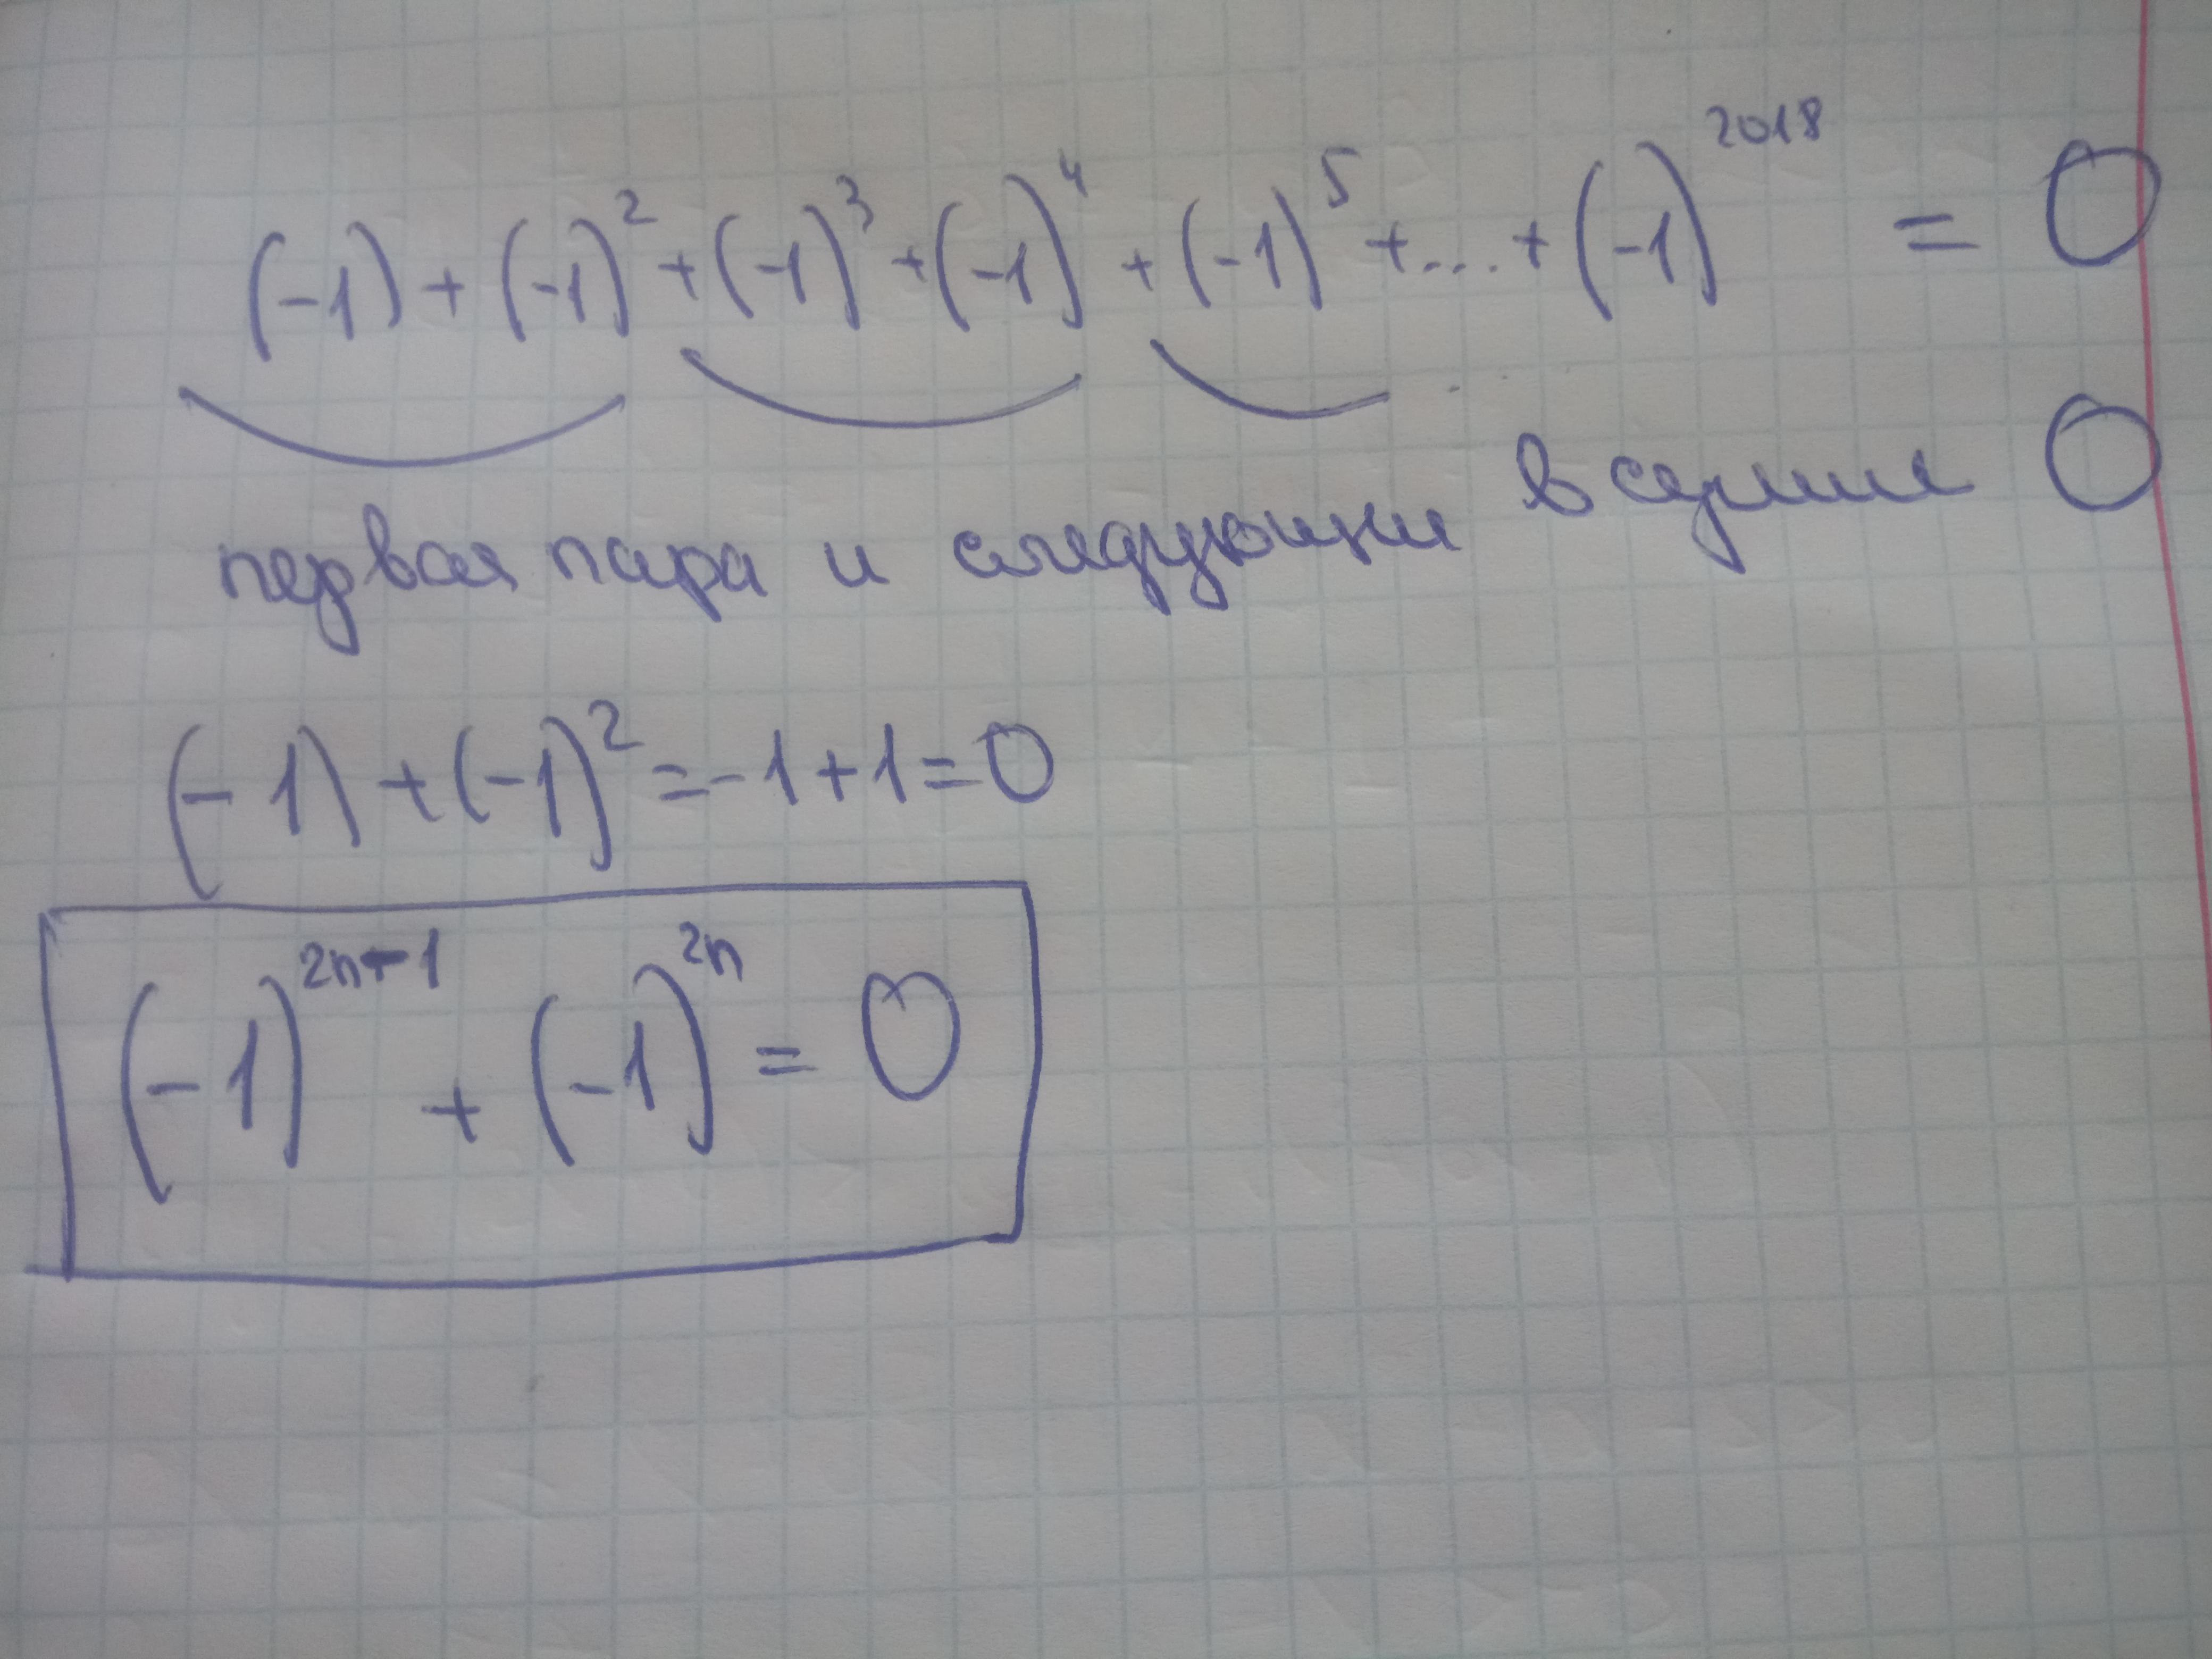 (-1) + (-1)² + (-1)³ + (-1)⁴ + (-1)⁵ + ... + (-1)²⁰¹⁸ = 0
первая пара и следующие в сумме 0
(-1) + (-1)² = -1 + 1 = 0
(-1)²ⁿ⁺¹ + (-1)²ⁿ = 0